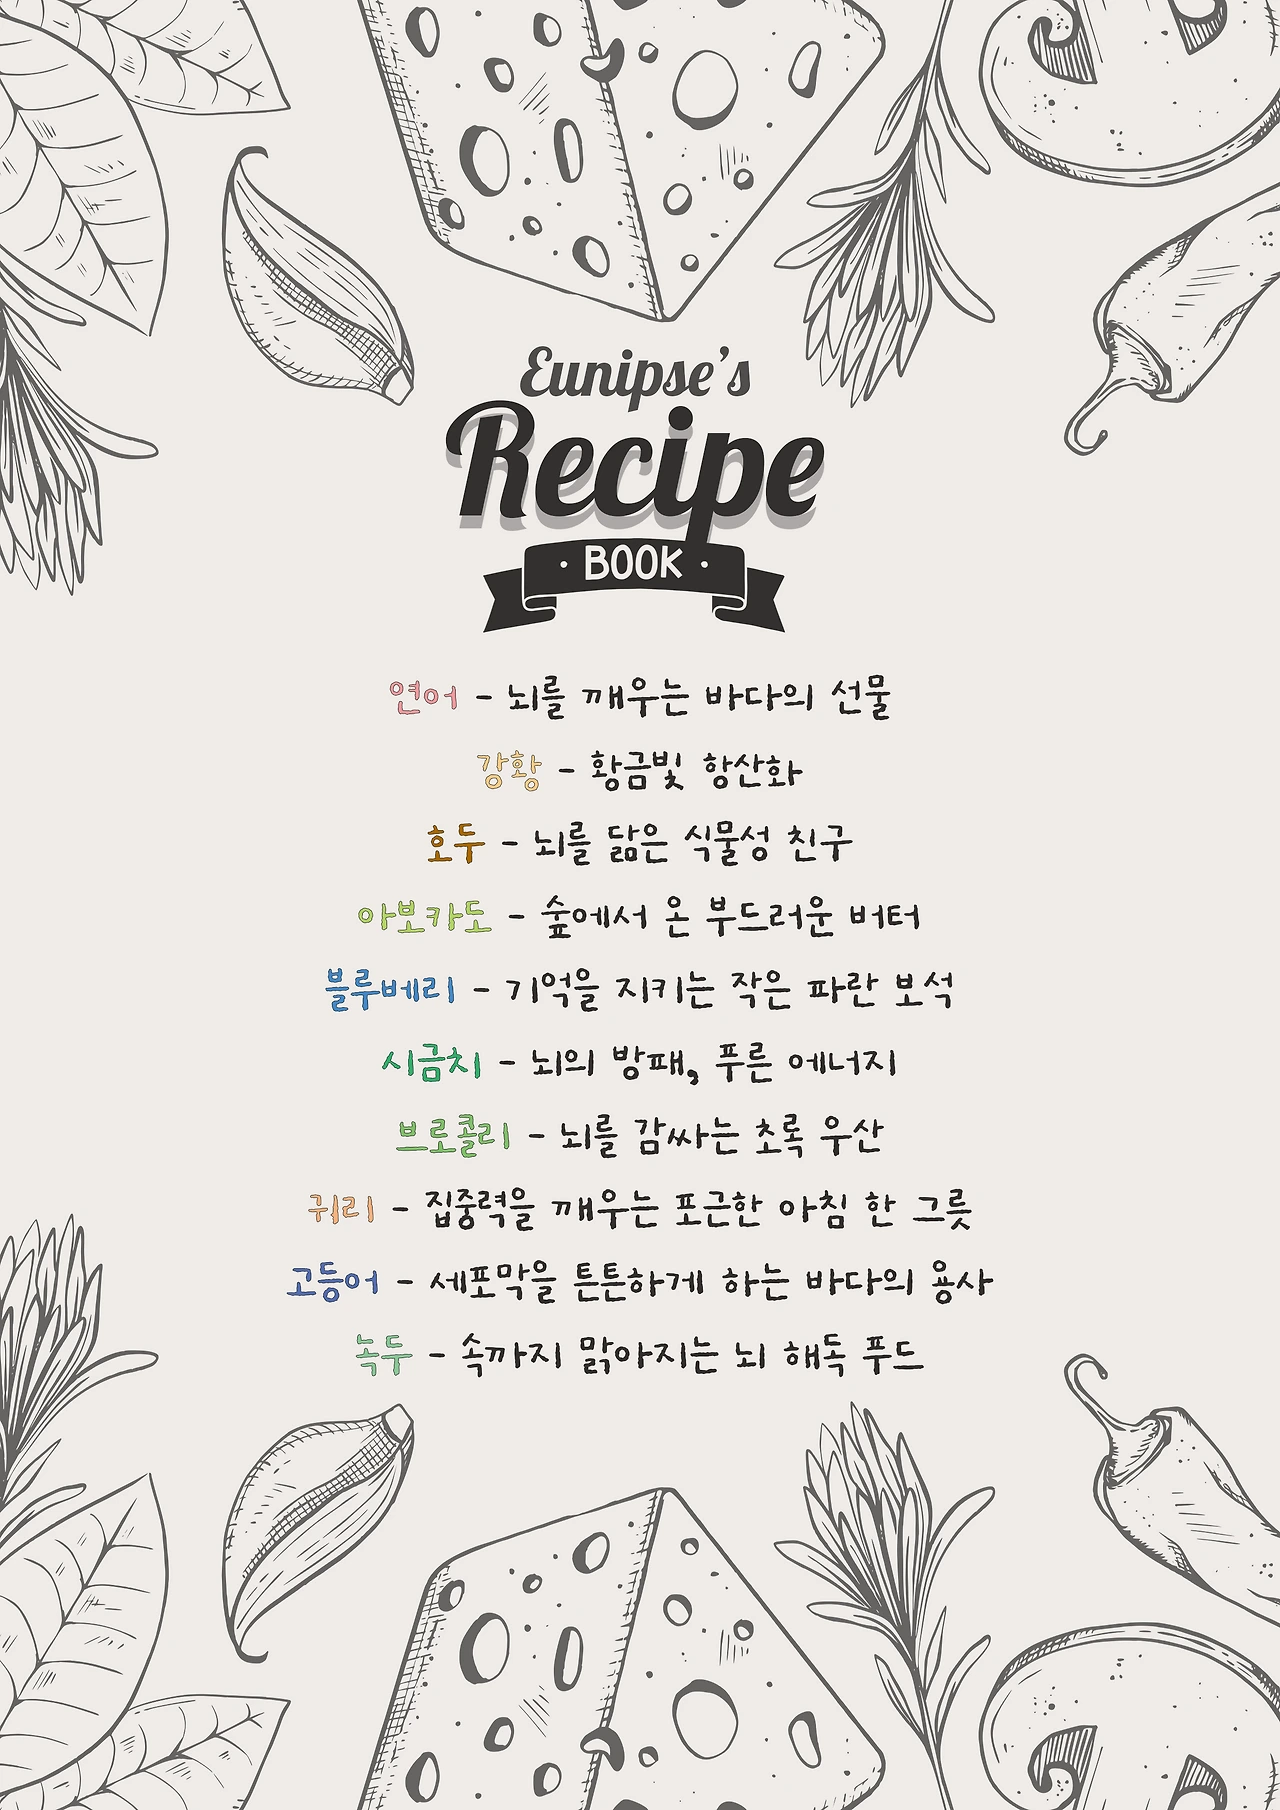 Eunipse's
Recipe
· BOOK ·
연어 - 뇌를 깨우는 바다의 선물
강황 - 황금빛 항산화
호두 - 뇌를 닮은 식물성 친구
아보카도 - 숲에서 온 부드러운 버터
블루베리 - 기억을 지키는 작은 파란 보석
시금치 - 뇌의 방패, 푸른 에너지
브로콜리 - 뇌를 감싸는 초록 우산
귀리 - 집중력을 깨우는 포근한 아침 한 그릇
고등어 - 세포막을 튼튼하게 하는 바다의 용사
녹두 - 속까지 맑아지는 뇌 해독 푸드